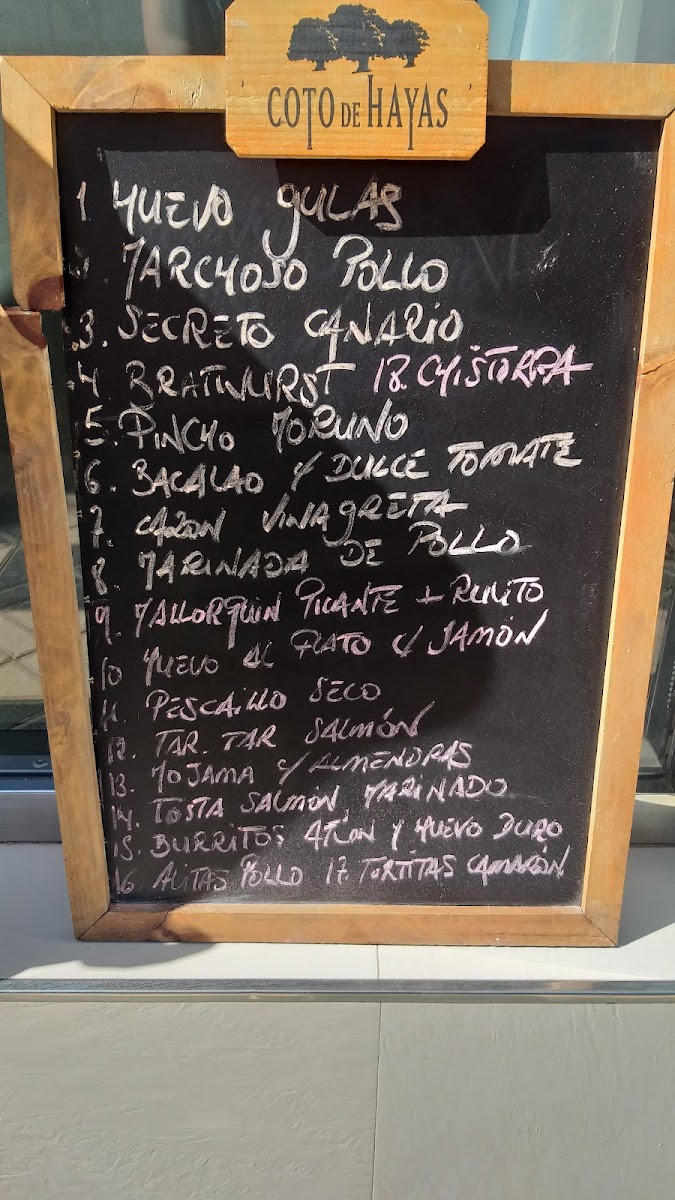 COTO DE HAYAS
1 HUEVO GULAS
MARCHOSO POLLO
3. SECRETO CANARIO
4 BRATWURST 18. CHISTORRA
5. PINCHO MORUNO
6. BACALAO Y DULCE TOMATE
7. CAZON VINAGRETA
8. MARINADA DE POLLO
9. MALLORQUIN PICANTE + RULITO
10 HUEVO AL PLATO C/ JAMÓN
11. PESCAILLO SECO
12. TAR. TAR SALMÓN
13. MOJAMA C/ ALMENDRAS
14. TOSTA SALMÓN MARINADO
15. BURRITOS ATÚN Y HUEVO DURO
16. ALITAS POLLO 17. TORTITAS CAMARÓN